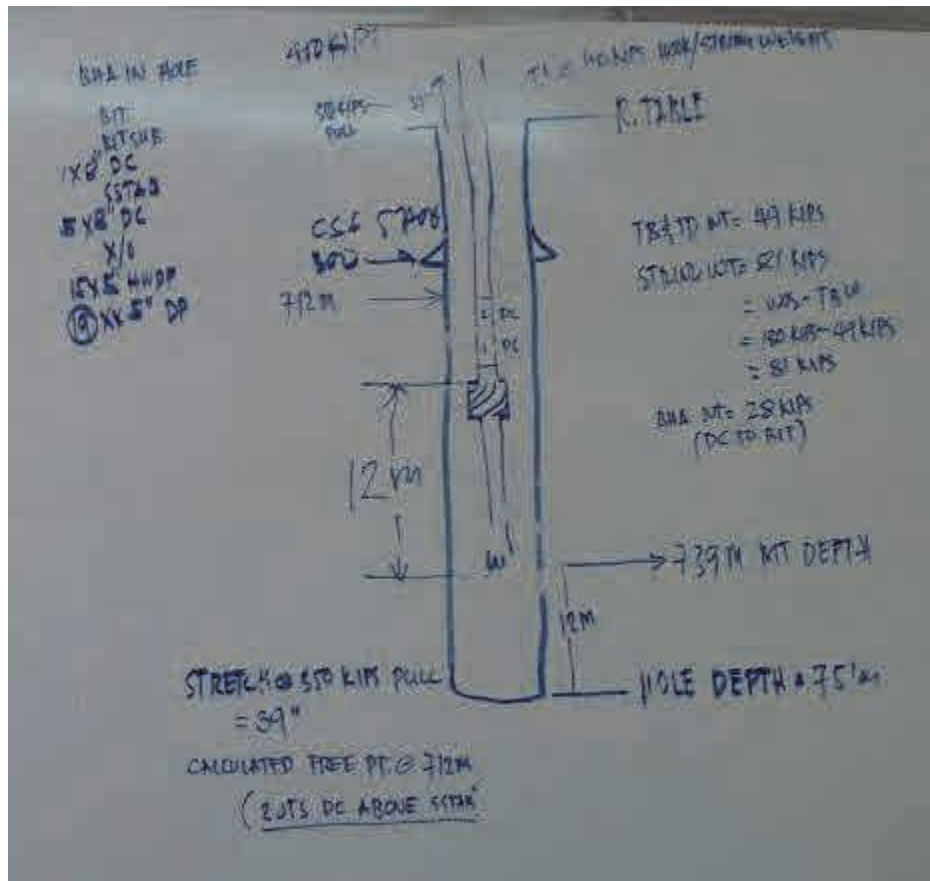 BHA IN HOLE
BIT
BITSUB
1X8" DC
SSTAB
5X8" DC
X/O
15X5 HWDP
XX 5" DP
PULL
HOOK/STRING WEIGHT
R. TABLE
CSG
712m
2 DC
1 DC
12m
TB & TD WT = 49 KIPS
STRING WT = 81 KIPS
= 130 KIPS - 49 KIPS
= 81 KIPS
BHA WT = 28 KIPS
(DC TO BIT)
739M BIT DEPTH
12M
HOLE DEPTH = 751m
STRETCH @ 350 KIPS PULL
= 39"
CALCULATED FREE PT. @ 712M
(2 JTS DC ABOVE SSTAB